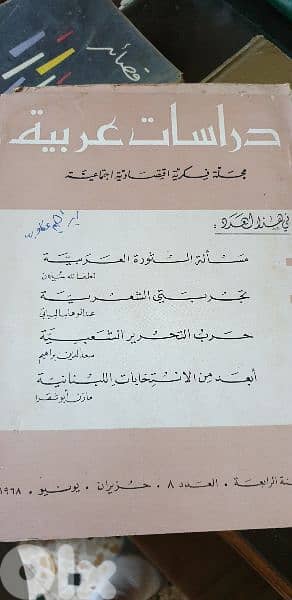 قصائد
دراسات عربية
مجلة فكرية اقتصادية اجتماعية
في هذا العدد :
مسألة الثورة العربية
تجربتي الشعرية
عبدالوهاب البياتي
حرب التحرير الشعبية
سعد الدين ابراهيم
أبعد من الانتخابات اللبنانية
مازن أبو شقرا
نة الرابعة ٠ العدد ٨ ٠ حزيران ٠ يونيو ٠ ١٩٦٨
olx